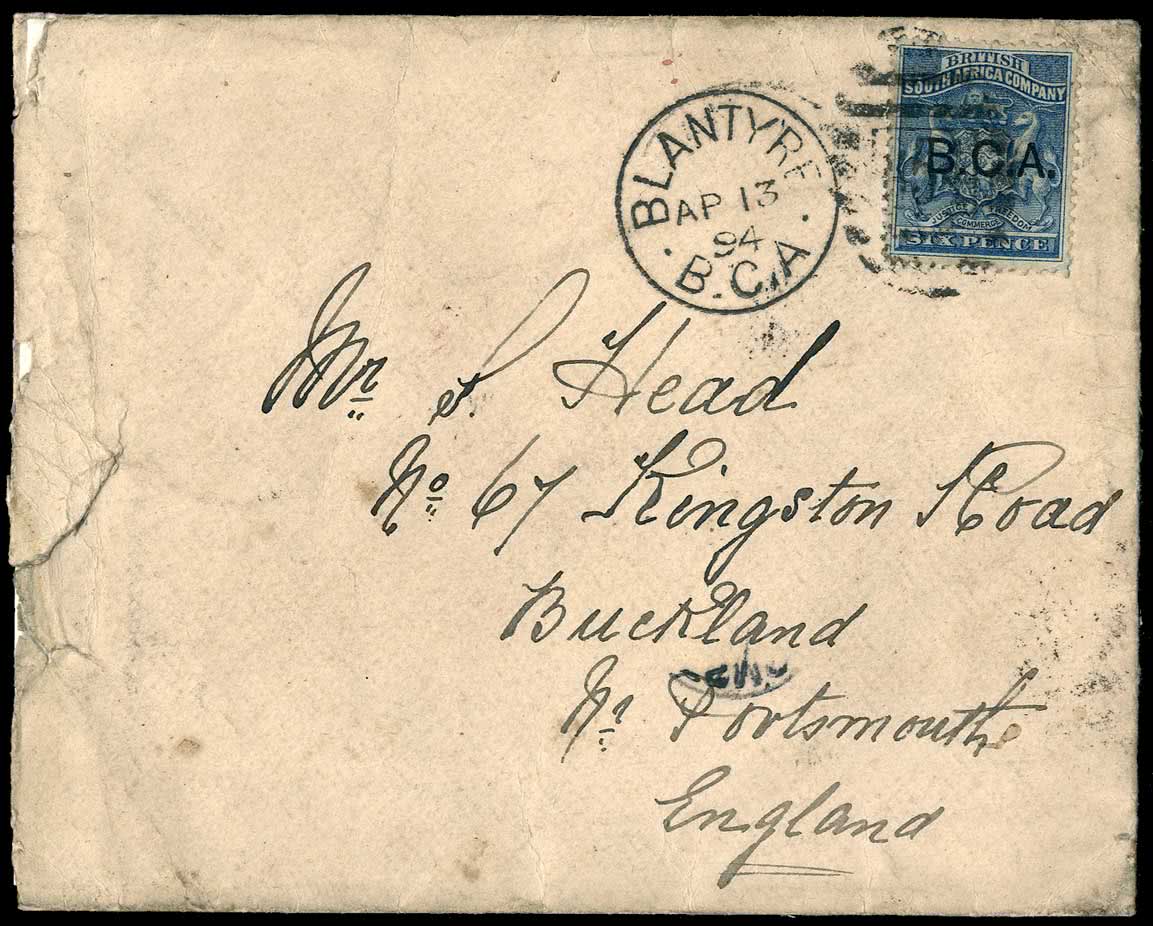 BRITISH
SOUTH AFRICA COMPANY
B.C.A.
JUSTICE FREEDOM
COMMERCE
SIX PENCE
BLANTYRE
AP 13
94
B.C.A.
Mr S. Head
No 67 Kingston Road
Buckland
Nr Portsmouth
England